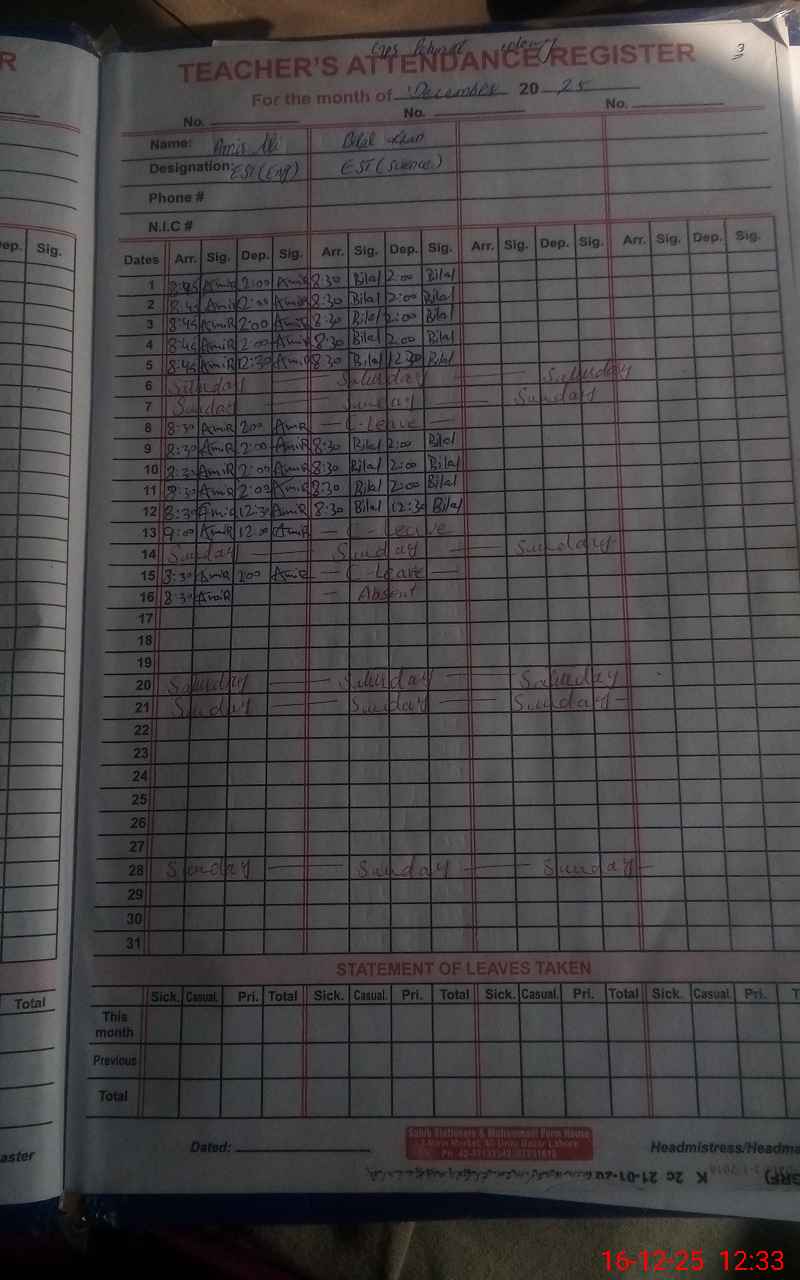 R
TEACHER'S ATTENDANCE REGISTER
3
For the month of December 20 25
No. No. No.
Name: Amir Ali Bilal Khan
Designation: EST (Eng) EST (Science)
Phone #
N.I.C #
ep. Sig.
Dates Arr. Sig. Dep. Sig. Arr. Sig. Dep. Sig. Arr. Sig. Dep. Sig. Arr. Sig. Dep. Sig.
1 8:45 Amir 2:00 Amir 8:30 Bilal 2:00 Bilal
2 8:45 Amir 2:00 Amir 8:30 Bilal 2:00 Bilal
3 8:45 AmiR 2:00 AmiR 8:30 Bilal 2:00 Bilal
4 8:45 AmiR 2:00 AmiR 8:30 Bilal 2:00 Bilal
5 8:45 AmiR 12:30 Amir 8:30 Bilal 12:30 Bilal
6 Saturday Saturday Saturday
7 Sunday Sunday Sunday
8 8:30 AmiR 200 AmiR C-Leave
9 8:30 AmiR 2:00 AmiR 8:30 Bilal 2:00 Bilal
10 8:30 AmiR 2:00 AmiR 8:30 Bilal 2:00 Bilal
11 8:30 AmiR 2:00 AmiR 8:30 Bilal 2:00 Bilal
12 8:30 Amir 12:30 AmiR 8:30 Bilal 12:30 Bilal
13 9:00 AmiR 12:00 AmiR C-Leave
14 Sunday Sunday Sunday
15 8:30 AmiR 200 AmiR C-Leave
16 8:30 AmiR Absent
17
18
19
20 Saturday Saturday Saturday
21 Sunday Sunday Sunday
22
23
24
25
26
27
28 Sunday Sunday Sunday
29
30
31
STATEMENT OF LEAVES TAKEN
Total
Sick. Casual. Pri. Total Sick. Casual. Pri. Total Sick. Casual. Pri. Total Sick. Casual. Pri. T
This month
Previous
Total
aster
Dated: Headmistress/Headma
16-12-25 12:33